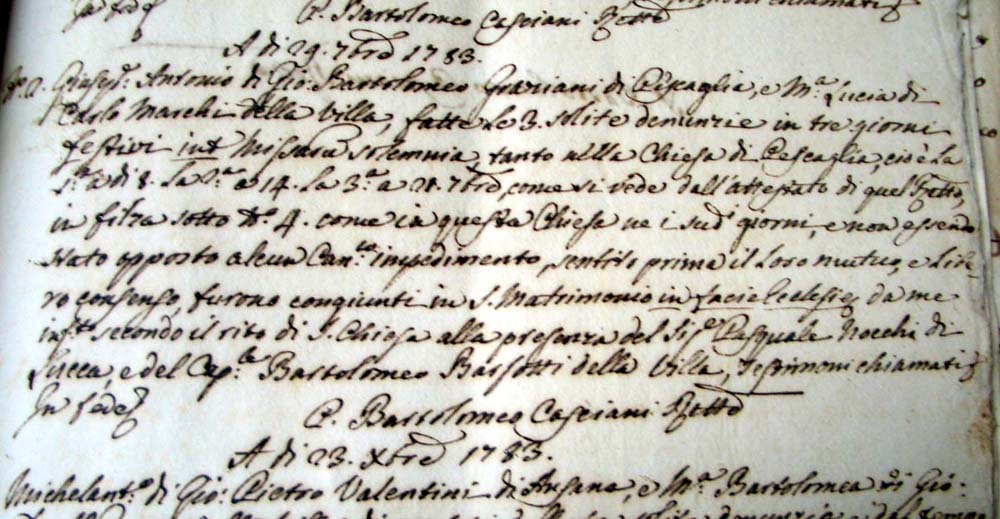 In fede
P. Bartolomeo Casciani Rettõ
A dì 29. 7brẽ 1783.
Giusepᵉ. Antonio di Gio: Bartolomeo Graziani di Pescaglia, e Mᵃ. Lucia di
Carlo Marchi della Villa, fatte le 3. solite denunzie in tre giorni
festivi int̃ Missarũ solemnia, tanto nella Chiesa di Pescaglia, cioè la
1ᵃ. a dì 8. la 2ᵃ. a 14. la 3ᵃ. a 21. 7brẽ, come si vede dall'attestato di quel Rettõ,
in filza sotto Nº. 4. come in questa Chiesa ne i sudⁱ giorni, e non essendo
stato opposto alcun Canᶜᵒ. impedimento, sentito prima il loro mutuo, e libe
ro consenso, furono congiunti in S. Matrimonio in facie Ecclesię da me
infᵗᵒ secondo il rito di S. Chiesa alla presenza del Sigᵉ Pasquale Nocchi di
Lucca, e del Capⁿᵉ. Bartolomeo Barsotti della Villa, Testimoni chiamati
In fede
P. Bartolomeo Casciani Rettõ
A dì 23. Xbrẽ 1783.
Michelantº. di Gio: Pietro Valentini di Ansana, e Mᵃ. Bartolomea di Gio: